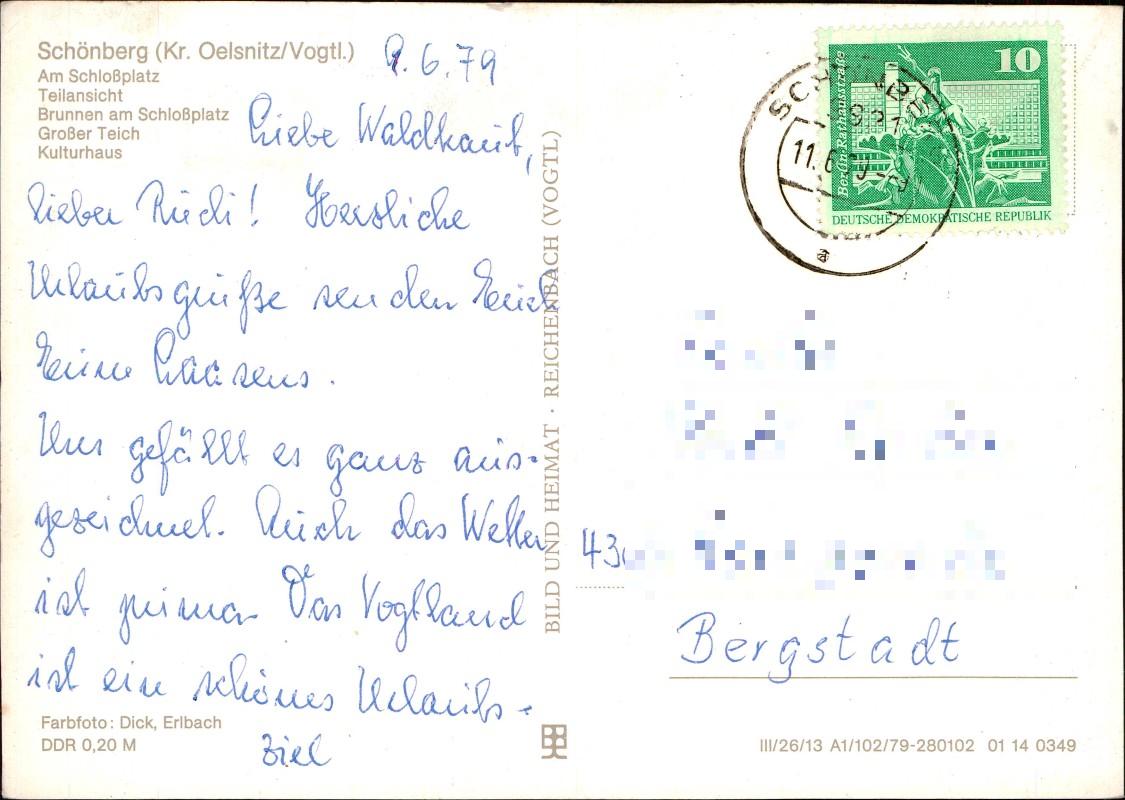 Schönberg (Kr. Oelsnitz/Vogtl.)
Am Schloßplatz
Teilansicht
Brunnen am Schloßplatz
Großer Teich
Kulturhaus
9.6.79
Liebe Waldtraut,
lieber Rudi! Herzliche
Urlaubsgrüße senden Euch
Eure Claasens.
Uns gefällt es ganz aus-
gezeichnet. Auch das Wetter
ist prima. Das Vogtland
ist ein schönes Urlaubs-
ziel
Farbfoto: Dick, Erlbach
DDR 0,20 M
BILD UND HEIMAT · REICHENBACH (VOGTL)
10
Berlin, Rathausstraße
DEUTSCHE DEMOKRATISCHE REPUBLIK
11.6.79
a
43
Bergstadt
III/26/13 A1/102/79-280102 01 14 0349